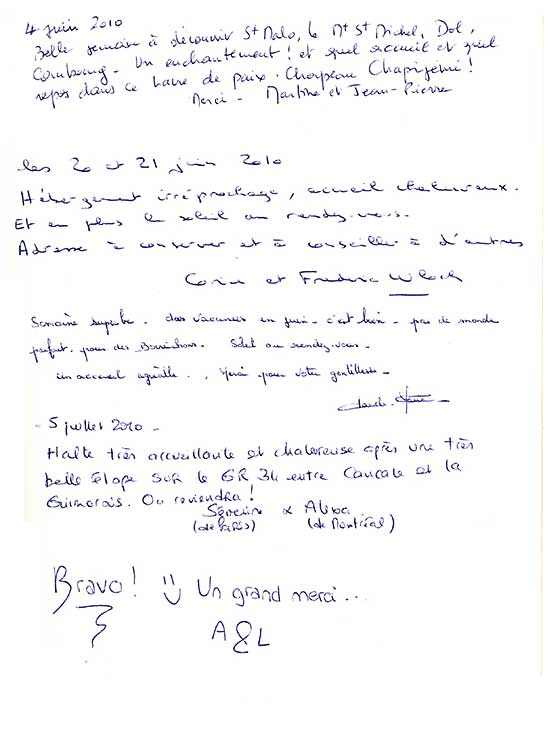 4 juin 2010
Belle semaine à découvrir St Malo, le Mt St Michel, Dol,
Combourg - Un enchantement ! et quel accueil et quel
repos dans ce havre de paix. Chapeau Chapizémi !
Merci - Martine et Jean-Pierre
les 20 et 21 juin 2010
Hébergement irréprochage, accueil chaleureux.
Et en plus le soleil au rendez-vous.
Adresse à conserver et à conseiller à d'autres
et Frédéric
Semaine superbe. des vacances en juin - c'est bien - pas de monde
parfait. pour des Soleil au rendez-vous -
un accueil agréable.. Merci pour votre gentillesse -
Claude
- 5 juillet 2010 -
Halte très accueillante et chaleureuse après une très
belle étape sur le GR 34 entre Cancale et la
Guimorais. On reviendra !
Séverine & 
(de Paris) (de Montréal)
Bravo ! Un grand merci...
A & L